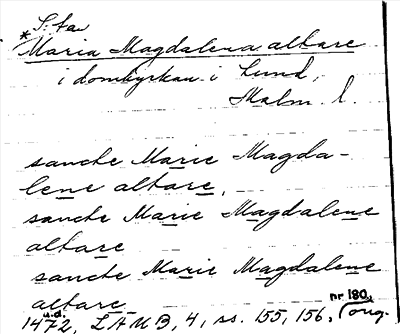 S:ta
*Maria Magdalena altare
i domkyrkan i Lund,
Malm. l.
sancte Marie Magda-
lene altare,
sancte Marie Magdalene
altare
sancte Marie Magdalene
altare
u.d. nr 180,
1472, LÄUB, 4, ss. 155, 156, (orig.